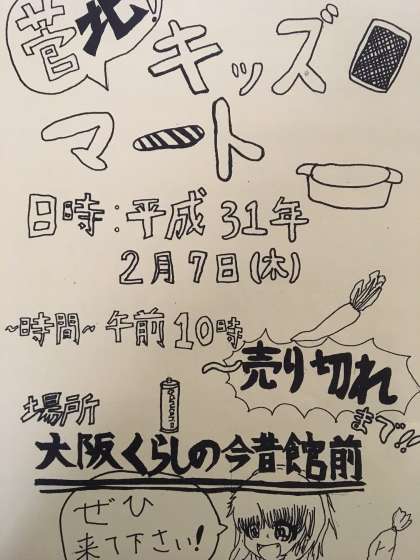 菅北!
キッズ
マート
日時:平成31年
2月7日(木)
~時間~ 午前10時
売り切れ
まで!!
場所
大阪くらしの今昔館前
ぜひ
来て下さい!